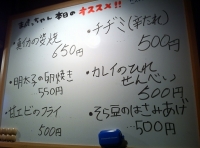 本日のオススメ!!
・チヂミ(辛たれ)
500円
の炭焼
650円
・明太子の卵焼き
550円
・カレイのひれせんべい
500円
・甘エビのフライ
500円
・そら豆のはさみあげ
500円